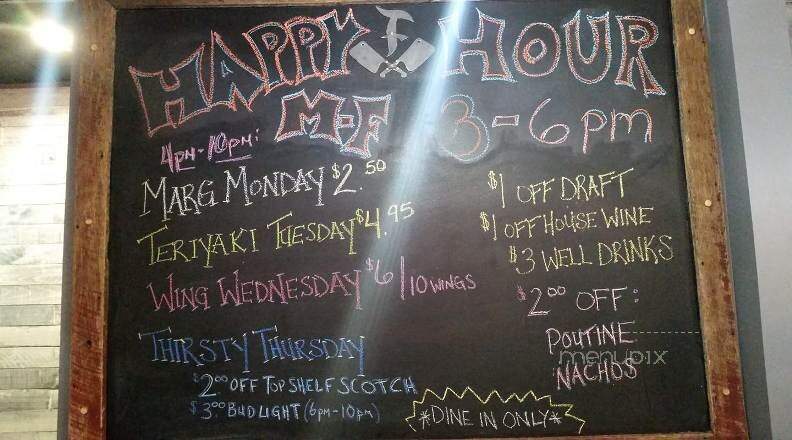 HAPPY HOUR
M-F 3-6pm
4PM-10PM:
MARG MONDAY $2.50
TERIYAKI TUESDAY $4.95
WING WEDNESDAY $6/10 WINGS
THIRSTY THURSDAY
$2.00 OFF TOP SHELF SCOTCH
$3.00 BUD LIGHT (6PM-10PM)
$1 OFF DRAFT
$1 OFF HOUSE WINE
$3 WELL DRINKS
$2.00 OFF:
POUTINE
NACHOS
*DINE IN ONLY*
menupix